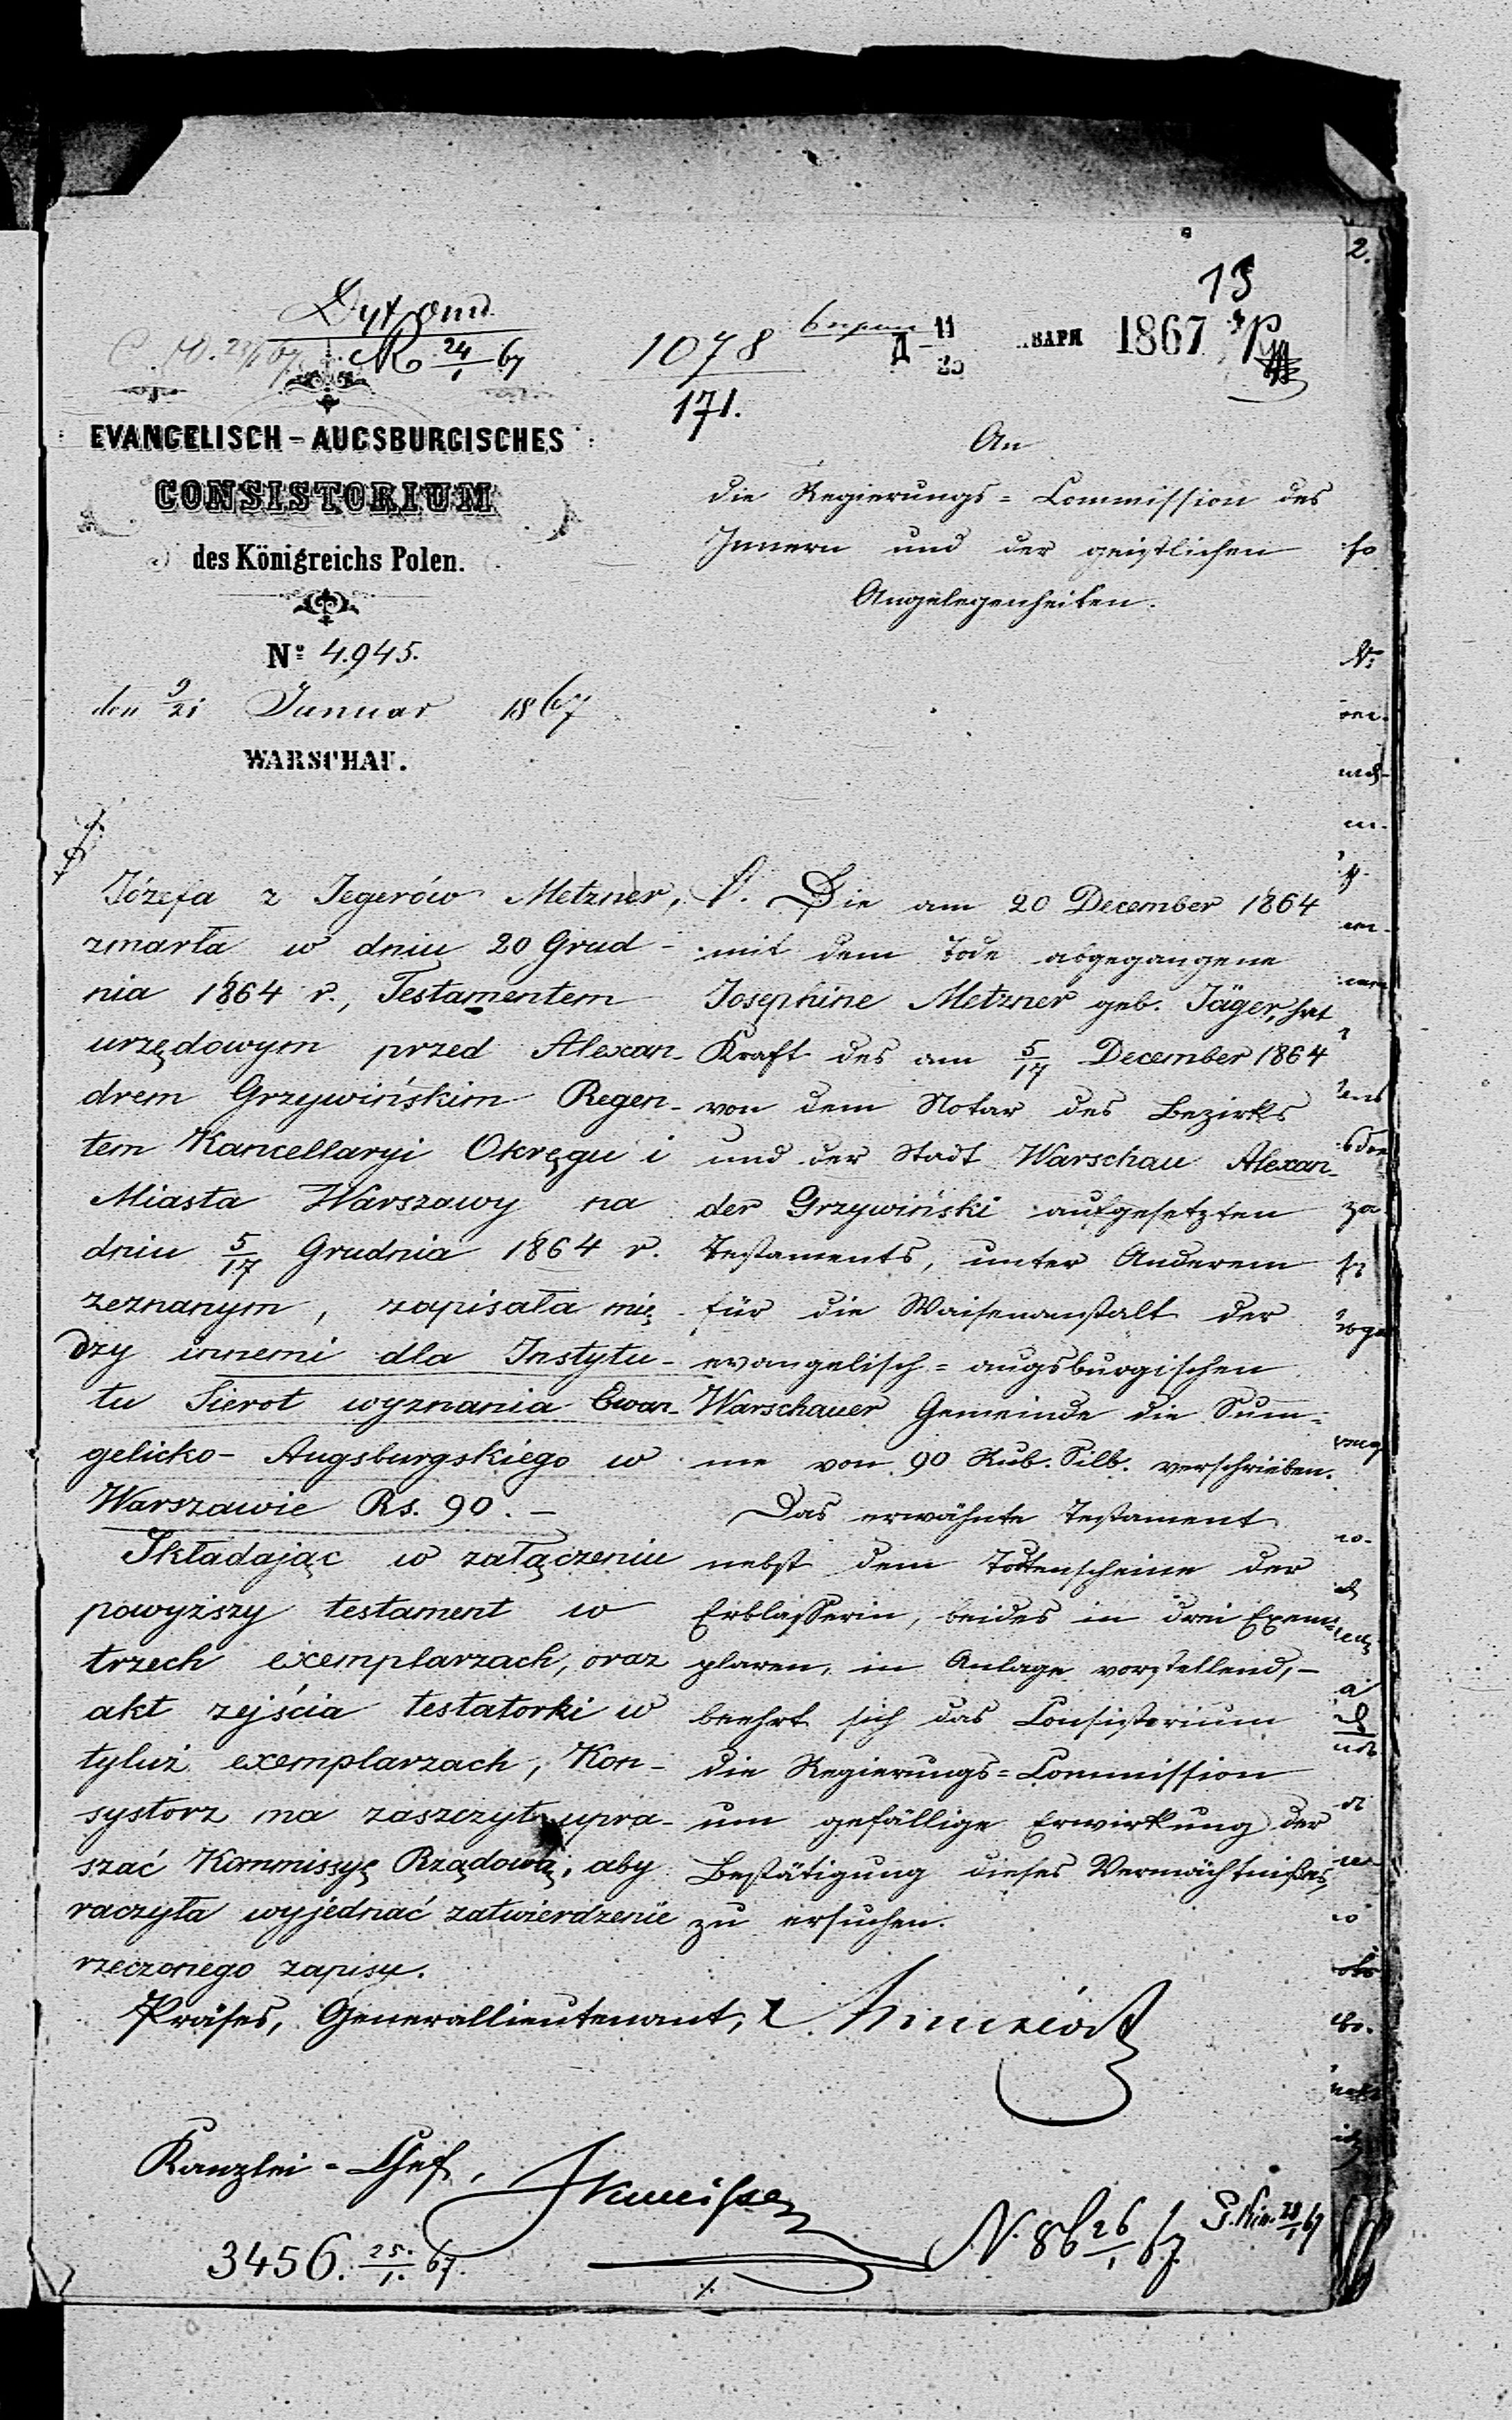 2.
15
1078
171.
11
1867
24/1 67
EVANGELISCH-AUGSBURGISCHES
CONSISTORIUM
des Königreichs Polen.
Nº 4.945.
den 9/21 Januar 1867
WARSCHAU.
An
die Regierungs-Commission des
Innern und der geistlichen
Angelegenheiten.
Józefa z Jegerów Metzner,
zmarła w dniu 20 Grud-
nia 1864 r., Testamentem
urzędowym przed Alexan-
drem Grzywińskim Regen-
tem Kancellaryi Okręgu i
Miasta Warszawy na
dniu 5/17 Grudnia 1864 r.
zeznanym, zapisała mię-
dzy innemi dla Instytu-
tu Sierot wyznania Ewan-
gelicko-Augsburgskiego w
Warszawie Rs. 90.-
Składając w załączeniu
powyższy testament w
trzech exemplarzach, oraz
akt zejścia testatorki w
tyluż exemplarzach, Kon-
systorz ma zaszczyt upra-
szać Kommissyę Rządową, aby
raczyła wyjednać zatwierdzenie
rzeczonego zapisu.
Die am 20 December 1864
mit dem Tode abgegangene
Josephine Metzner geb. Jäger, hat
Kraft des am 5/17 December 1864
von dem Notar des Bezirks
und der Stadt Warschau Alexan-
der Grzywiński aufgesetzten
Testaments, unter Anderem
für die Waisenanstalt der
evangelisch-augsburgischen
Warschauer Gemeinde die Sum-
me von 90 Rub. Silb. verschrieben.
Das erwähnte Testament
nebst dem Todtenscheine der
Erblasserin, beides in drei Exem-
plaren, in Anlage vorstellend,-
beehrt sich das Consistorium
die Regierungs-Commission
um gefällige Erwirkung der
Bestätigung dieses Vermächtnißes,
zu ersuchen.
Präses, Generallieutenant,
Kanzlei-Chef,
3456. 25/1. 67.
N. 86 26/1 67